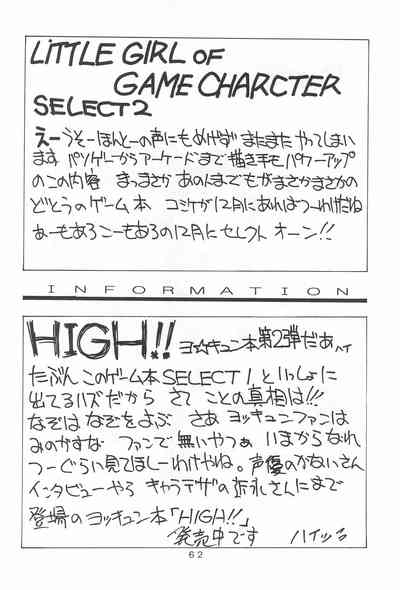 LiTTLE GIRL OF
GAME CHARCTER
SELECT2
えーうそーほんとーの声にもめげず またまた やってしまい
ます パソゲーからアーケードまで 描き手も パワーアップ
のこの内容 まっまさか あの人までもがまさかまさかの
どとうのゲーム本 コミケが12月にあればつーわけだね
あーもあろこーもあろの12月に セレクト オーン!!
INFORMATION
HIGH!! ヨ☆キュン本第2弾だぁハイ
たぶん このゲーム本SELECT1といっしょに
出てるハズだから さて ことの真相は!!!
なぞは なぞをよぶ さあ ヨッキュンファンは
みのがすな ファンで無いやつぁ いまからなれ
つーぐらい見てほしーわけやね。声優のかないさん
インタビューやら キャラデザの さんにまで
登場のヨッキュン本「HIGH!!」
発売中です ハイッ
62